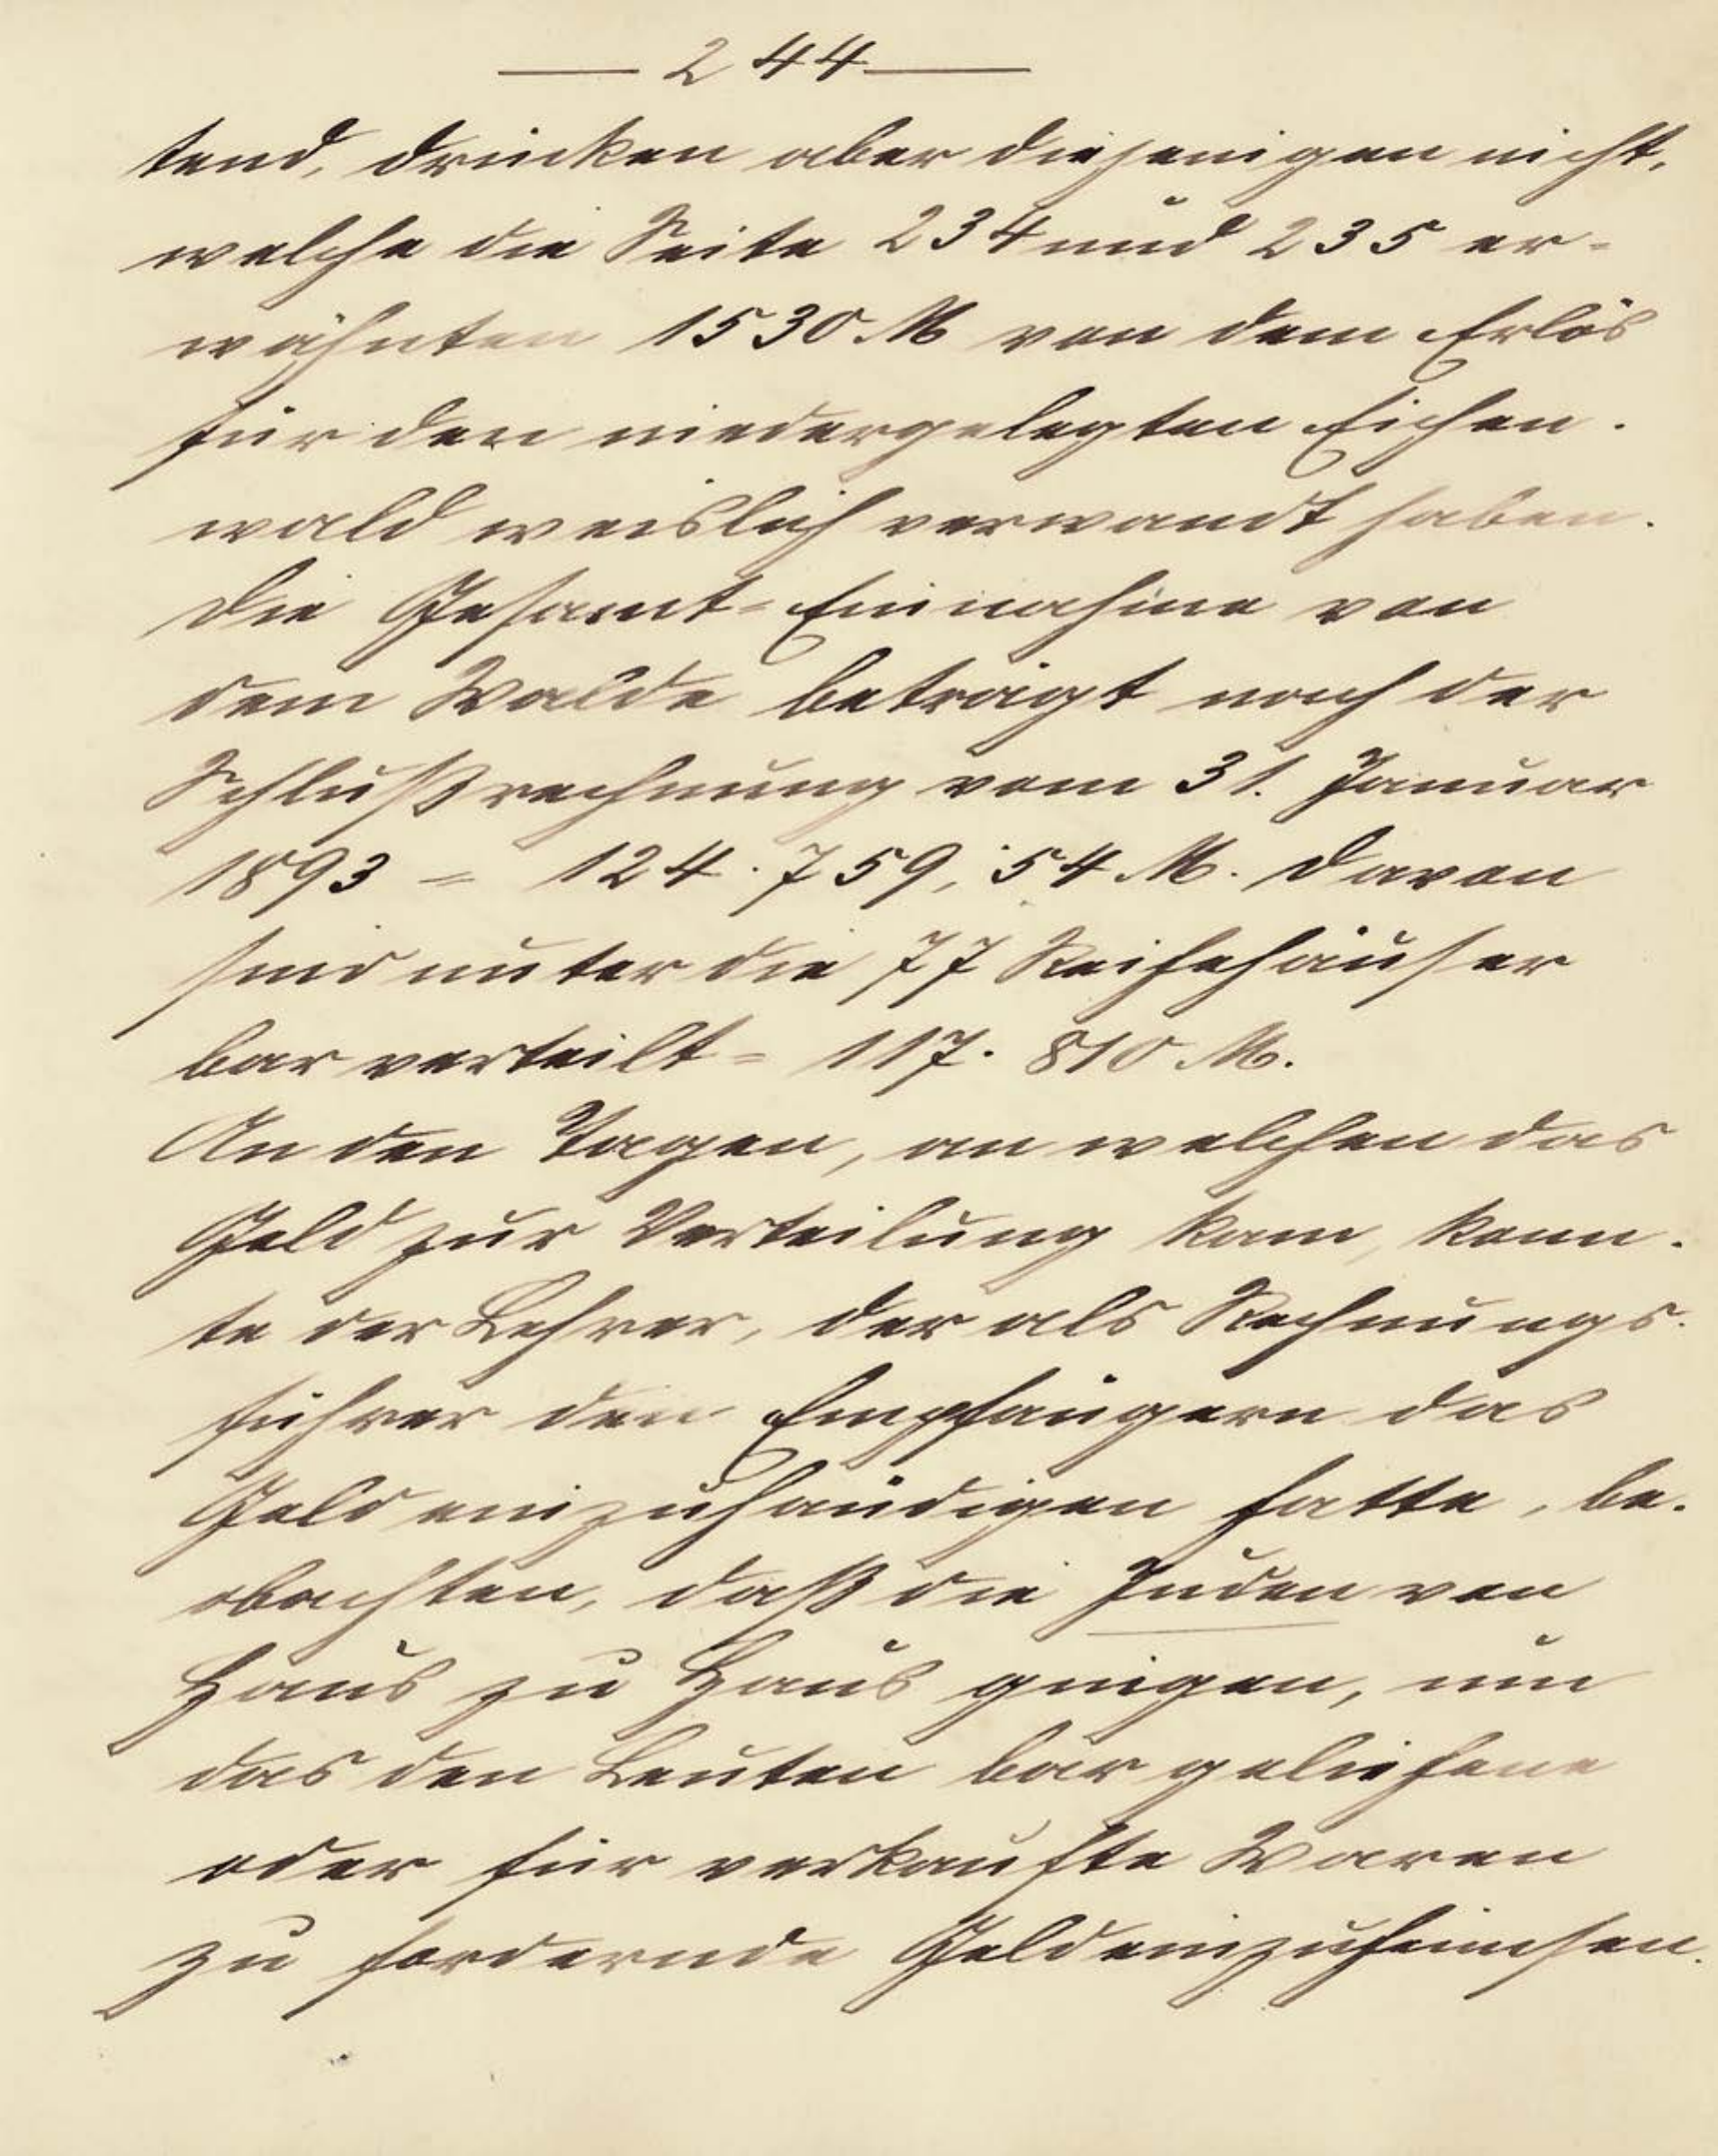 — 244 —
tend, drücken aber diejenigen nicht,
welche die Seite 234 und 235 er-
wähnten 1530 M von dem Erlös
für den niedergelegten Eichen-
wald weislich verwandt haben.
Die Gesamt-Einnahme von
dem Walde beträgt nach der
Schlußrechnung vom 31. Januar
1893 = 124.759,54 M. Davon
sind unter die 77 Reihehäuser
bar verteilt = 117.810 M.
An den Tagen, an welchen das
Geld zur Verteilung kam, konn-
te der Lehrer, der als Rechnungs-
führer den Empfängern das
Geld einzuhändigen hatte, be-
obachten, daß die Juden von
Haus zu Haus gingen, um
das den Leuten bar geliehene
oder für verkaufte Waren
zu fordernde Geld einzuheimsen.